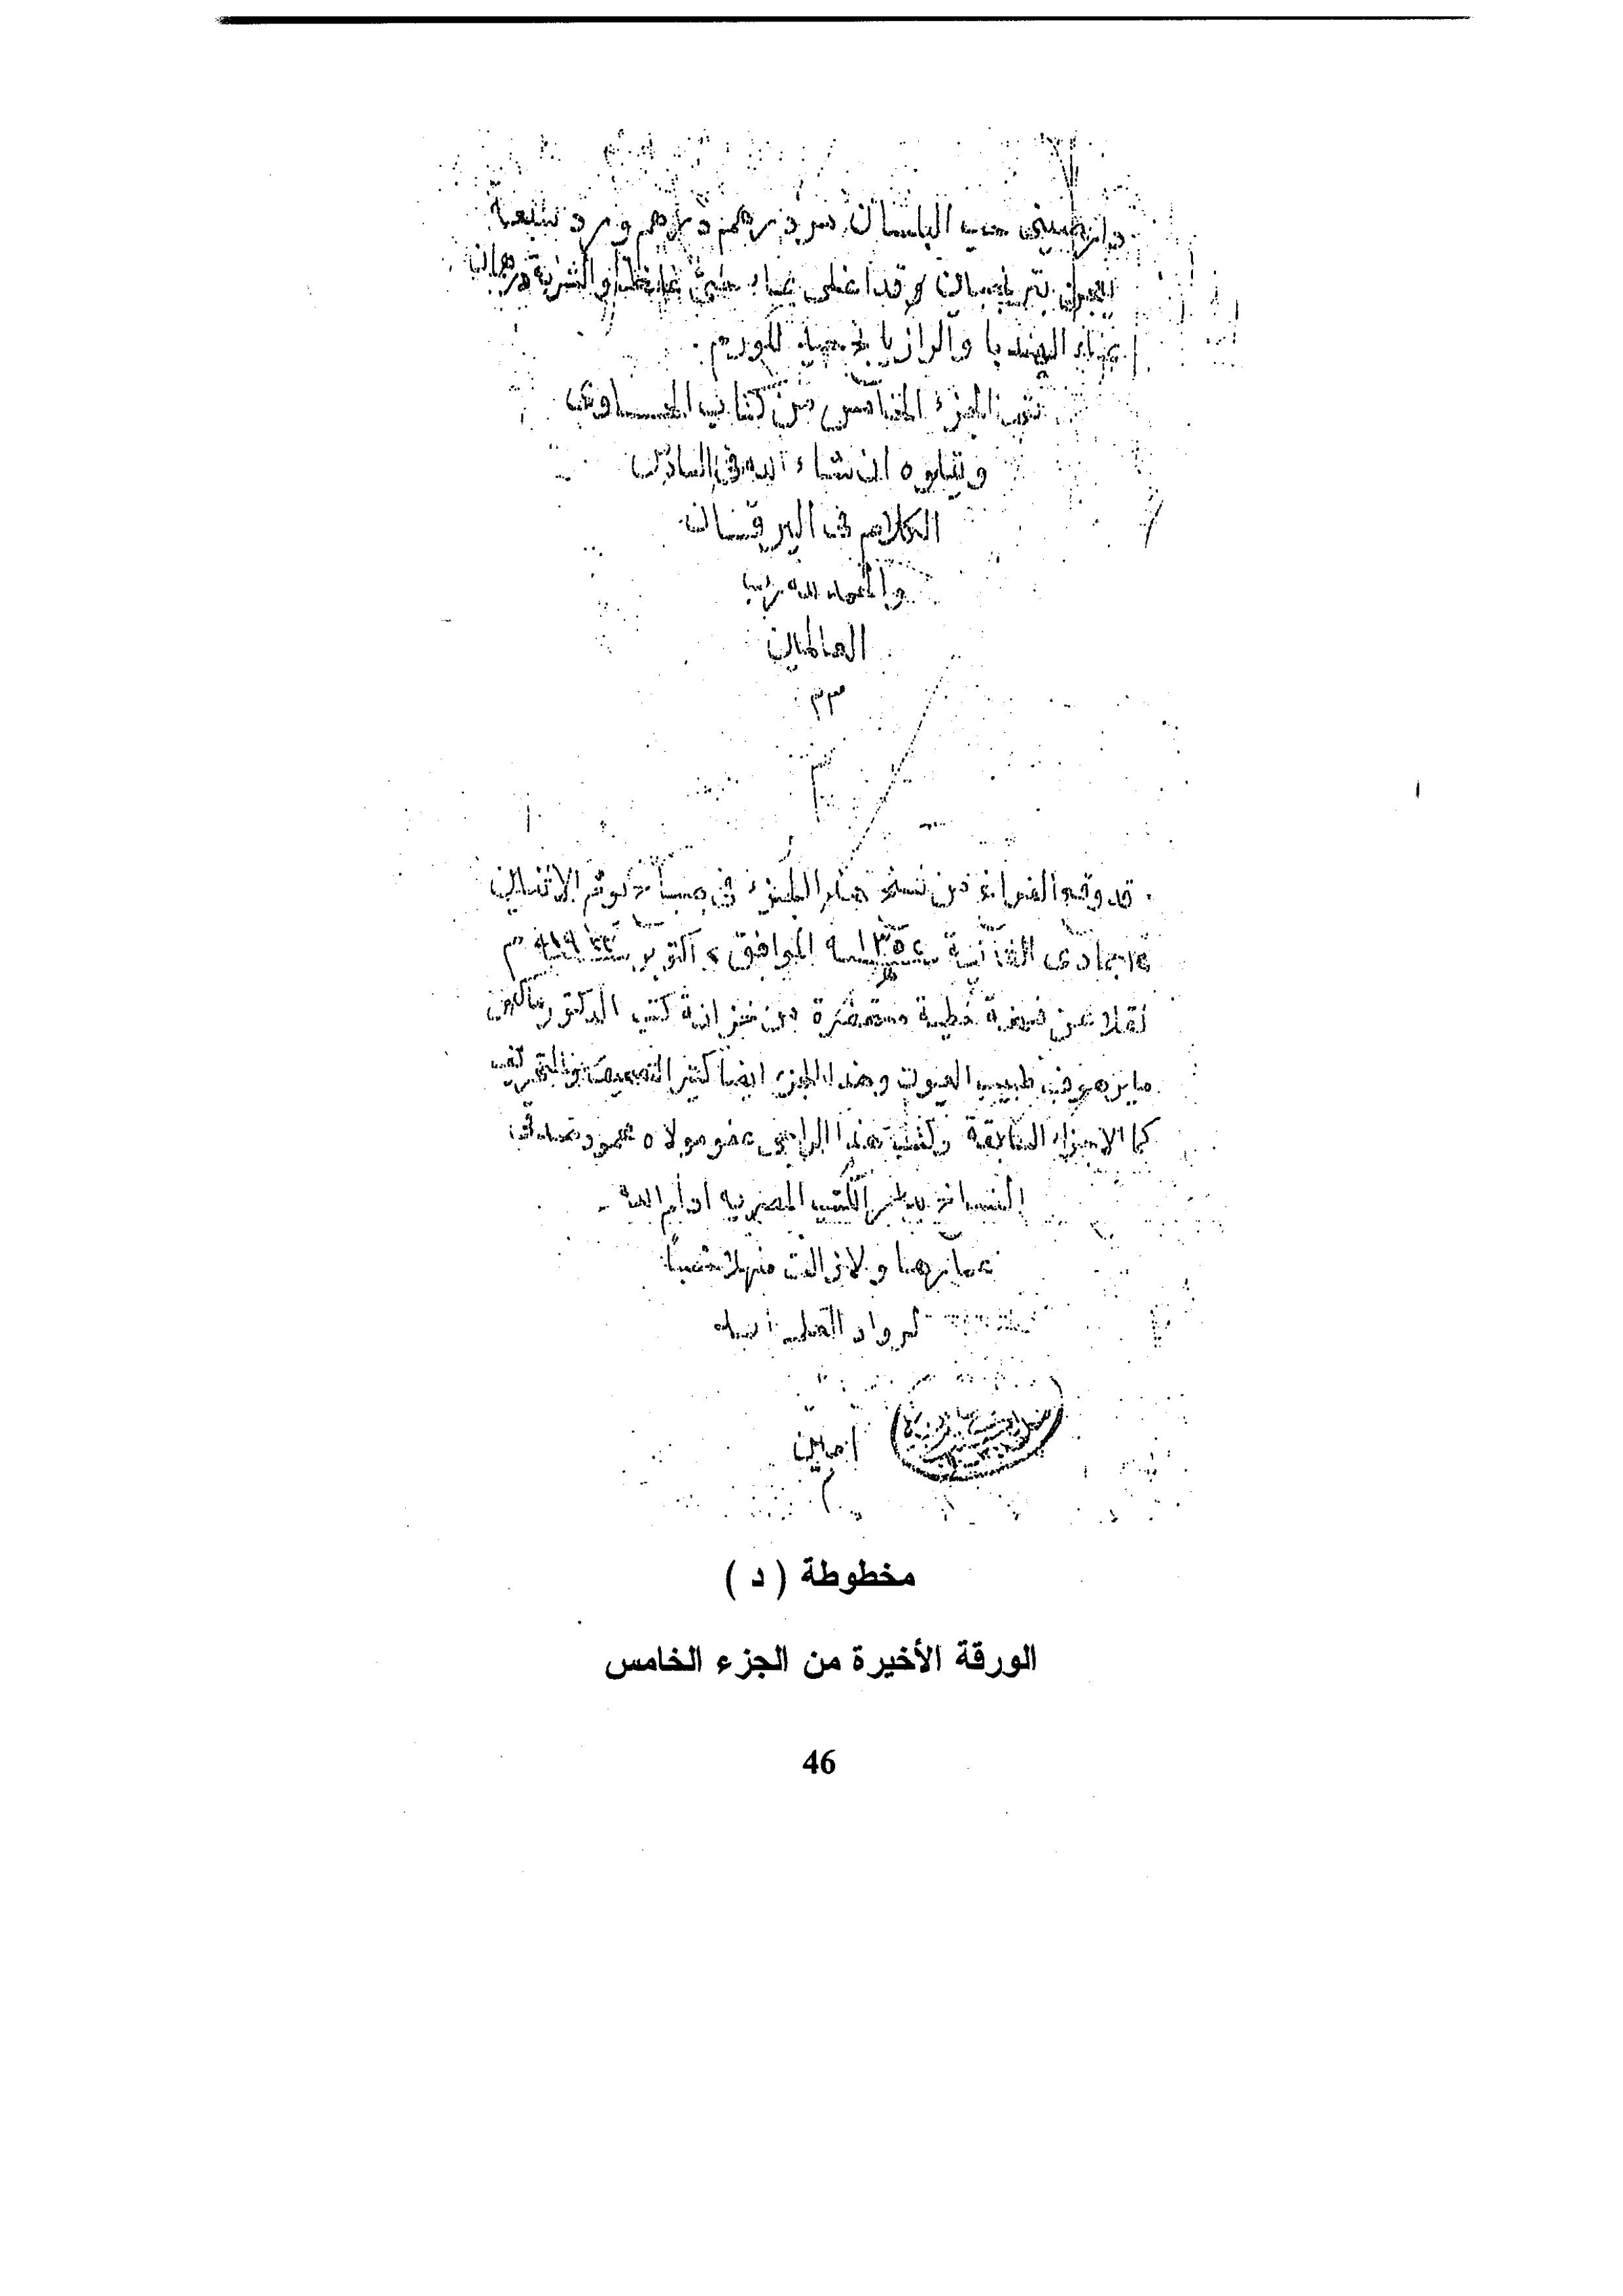 دارصينى حب البلسان مر درهم درهم ورد سبعة
يعجن وقد اغلى والشربة درهمان
بماء الهندبا والرازيانج جيد للورم.
تم الجزء الخامس من كتاب الحاوى
ويتلوه ان شاء الله فى السادس
الكلام فى اليرقان
والحمد لله رب
العالمين
قد وقع الفراغ من نسخ هذا الجزء فى صباح يوم الاثنين
جمادى الثانية سنة ١٣٥٢ الموافق اكتوبر سنة ١٩٣٣ م
نقلا عن نسخة خطية مستحضرة من خزانة كتب الدكتور ماكس
مايرهوف طبيب العيون وهذا الجزء ايضا كثير التصحيف والتحريف
كما الاجزاء السابقة وكتب هذا الراجى عفو مولاه محمود صدقى
النساخ بدار الكتب المصريه ادام الله
عمارها ولا زالت منهلا عذبا
لرواد
امين
مخطوطة ( د )
الورقة الأخيرة من الجزء الخامس
46